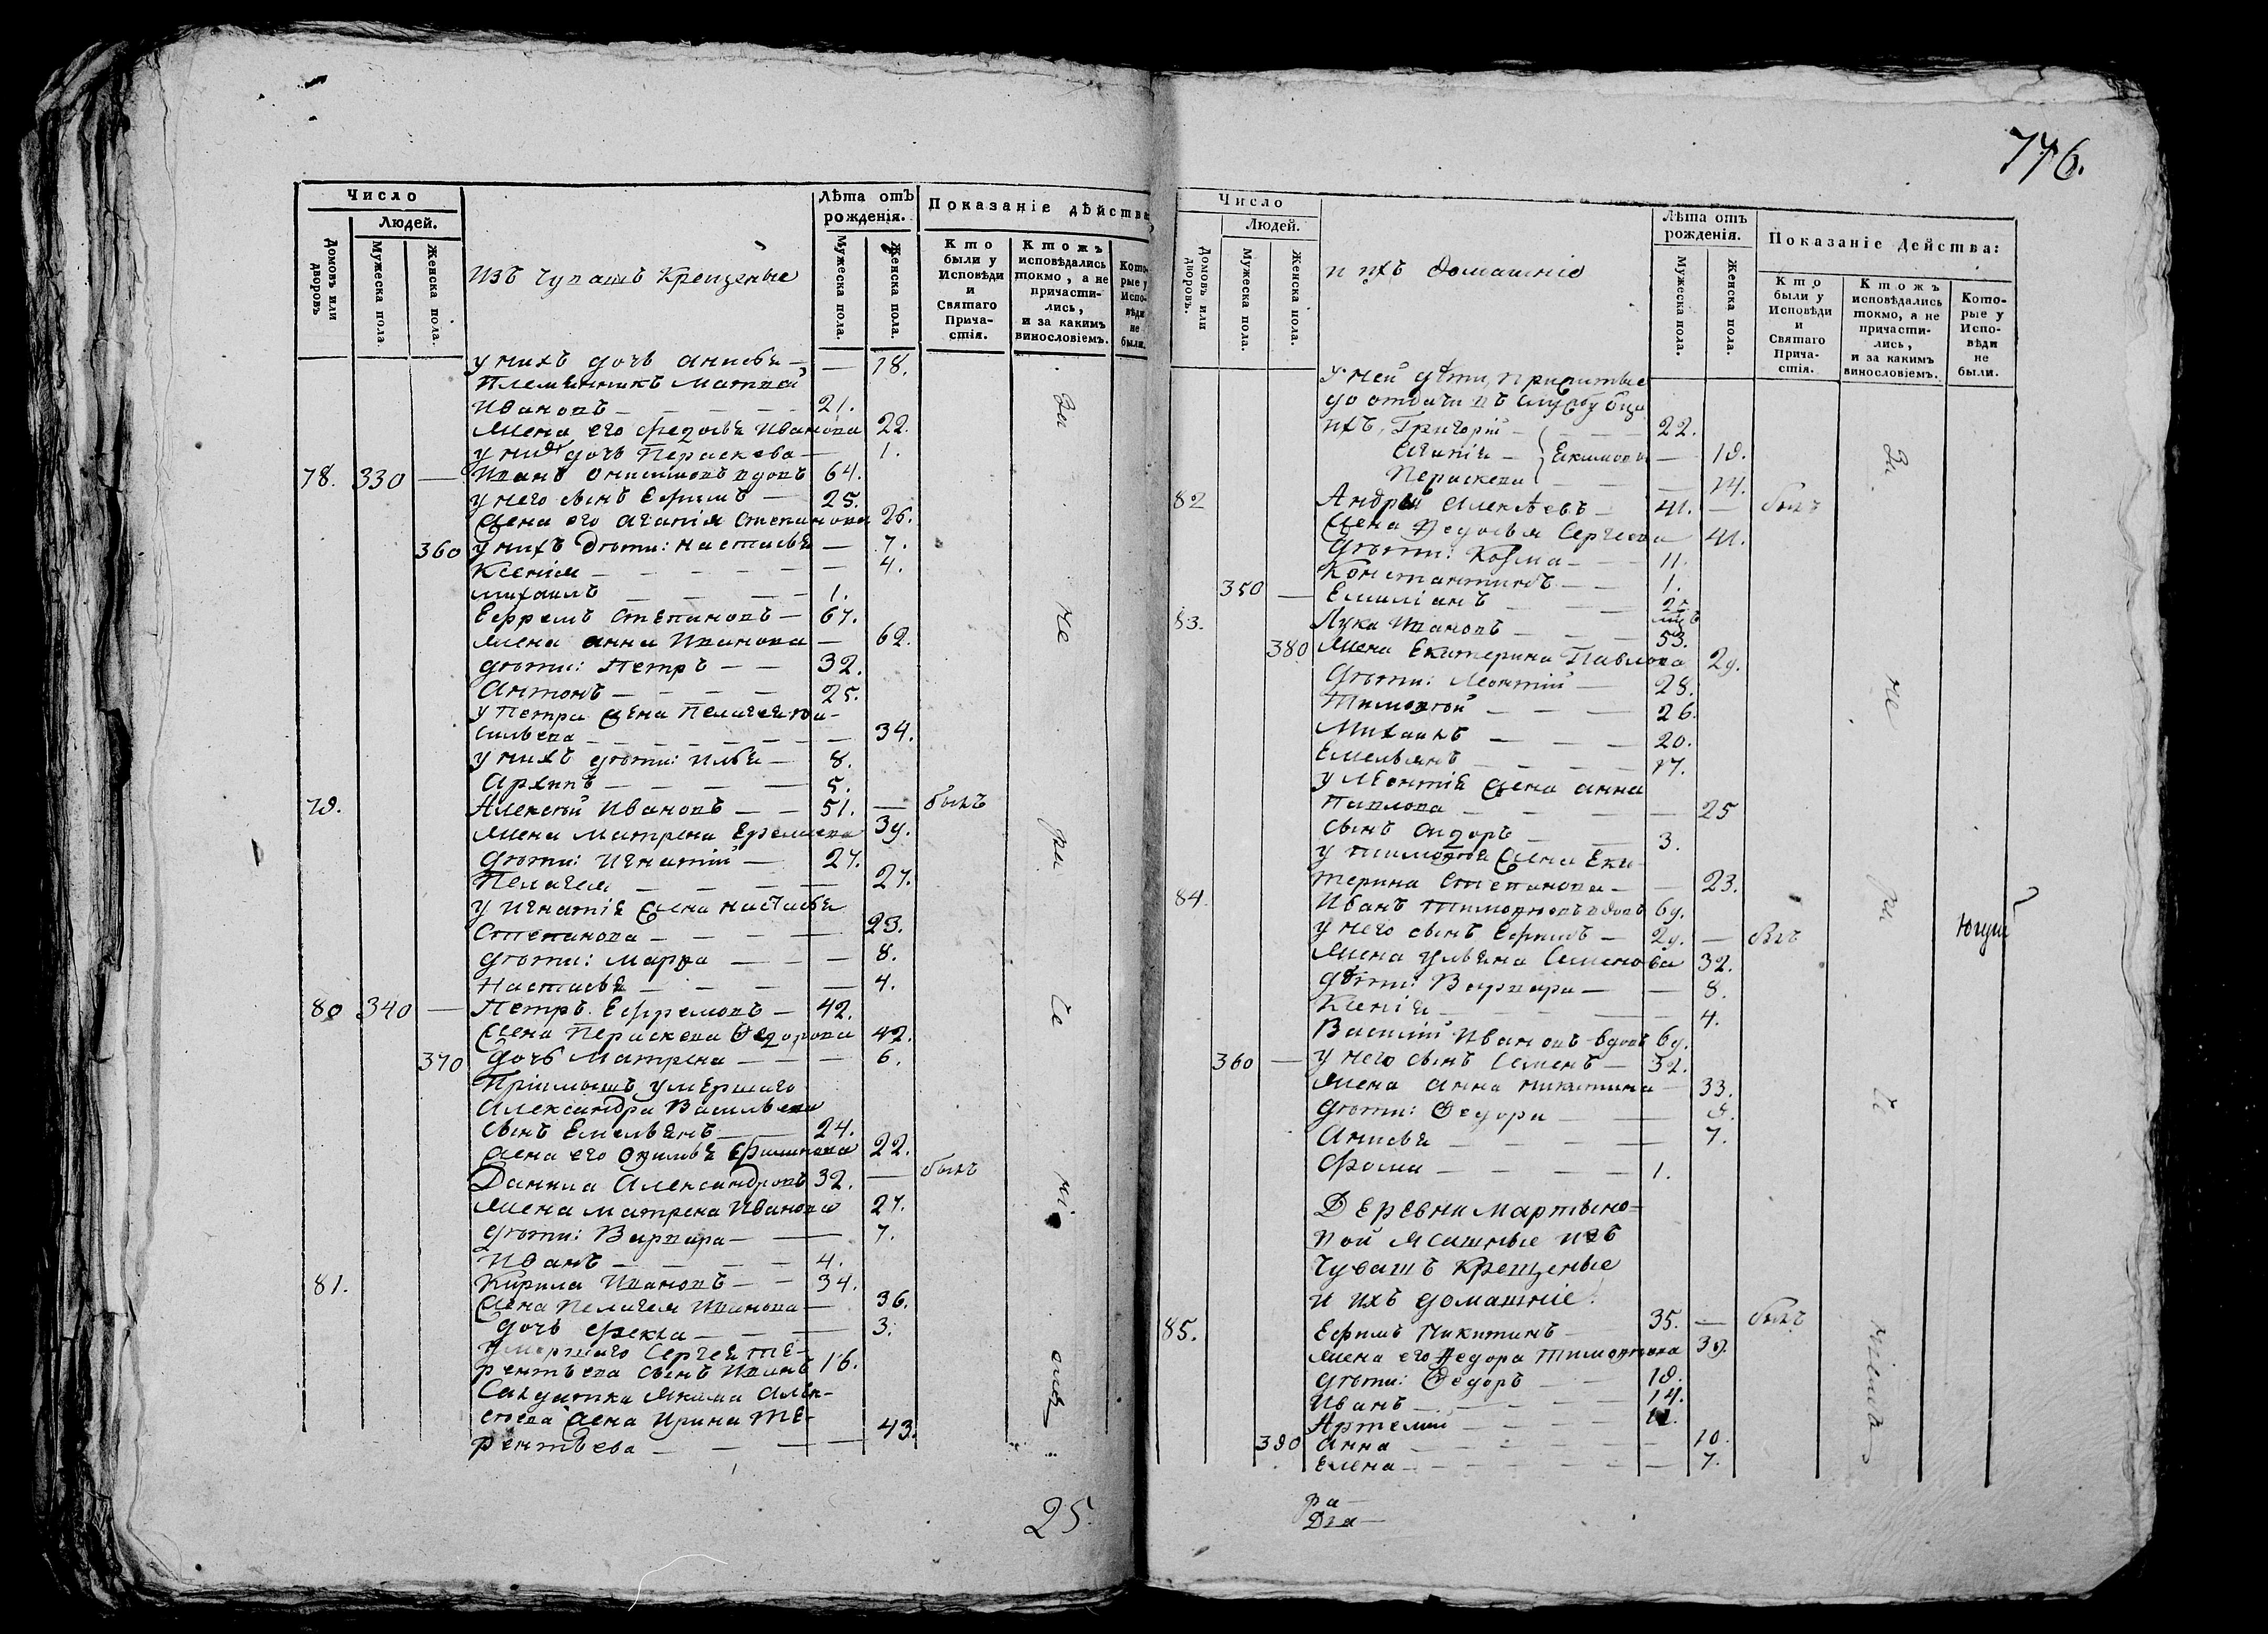 Число
Людей.
Домовъ или дворовъ
Мужеска пола.
Женска пола.
Изъ Чувашъ Крещеные
Лѣта отъ рожденія.
Мужеска пола.
Женска пола.
Показаніе дѣйства
Кто были у Исповѣди и Святаго Причастія.
Ктожъ исповѣдались токмо, а не причастились, и за какимъ винословіемъ.
Которые у Исповѣди не были.
у нихъ дочь Анисья — — 18.
Племянникъ Матвей
Ивановъ — 21.
Жена его Федосья Иванова 22.
у нихъ дочь Параскева — 1.
78. 330 — Иванъ Онисимовъ вдовъ 64.
у него сынъ Ефимъ — 25.
Жена его Агапія Степанова 26.
360 у нихъ дѣти: Настасья — 7.
Ксенія — 4.
Михаилъ — 1.
Ефремъ Степановъ — 67.
Жена Анна Иванова — 62.
дѣти: Петръ — 32.
Антонъ — 25.
у Петра Жена Пелагея Ва-
сильева — 34.
у нихъ дѣти: Илья — 8.
Архипъ — 5.
79. Алексѣй Ивановъ — 51. — былъ
Жена Матрена Еремеева 39.
дѣти: Игнатій — 27.
Пелагея — 27.
у Игнатія Жена Настасья
Степанова — 23.
дѣти: Марфа — 8.
Настасья — 4.
80 340 — Петръ Ефремовъ — 42.
Жена Параскева Федорова 42.
370 дочь Матрена — 6.
Пріимышъ умершаго
Александра Васильева
сынъ Емельянъ — 24.
Жена его Ефимова 22.
Данила Александровъ 32. — былъ
Жена Матрена Иванова 27.
дѣти: Варвара — 7.
Иванъ — 4.
81. Кирила Ивановъ — 34.
Жена Пелагея Иванова — 36.
дочь Фекла — 3.
умершаго Сергея Те-
рентьева сынъ Иванъ 16.
Салдатка Якима Алек-
сѣева Жена Ирина Те-
рентьева — 43.
За не ра че ні емъ
25
776.
Число
Людей.
Домовъ или дворовъ.
Мужеска пола.
Женска пола.
и ихъ домашніе
Лѣта отъ рожденія.
Мужеска пола.
Женска пола.
Показаніе Дейстма:
Кто были у Исповѣди и Святаго Причастія.
Ктожъ исповѣдались токмо, а не причастились, и за какимъ винословіемъ.
Которые у Исповѣди не были.
у ней дѣти, прижитые
до отдачи въ службу отца
ихъ, Григорій — 22.
Агапія — Екимовы — 19.
Параскева — 14.
82 Андрей Алексѣевъ — 41. — былъ
Жена Федосья Сергеева 41.
дѣти: Козма — 11.
Константинъ — 1.
350 — Емиліанъ
83. Лука Ивановъ — 53.
380 Жена Екатерина Павлова 29.
дѣти: Леонтій — 28.
Тимофѣй — 26.
Михаилъ — 20.
Емельянъ — 17.
у Леонтія Жена Анна
Павлова — 25
сынъ Сидоръ — 3.
у Тимофѣя Жена Ека-
терина Степанова — 23.
84. Иванъ Тимофѣевъ вдовъ 69.
у него сынъ Ефимъ — 29. — былъ
Жена Ульяна Семенова 32.
дѣти: Варвара — 8.
Ксенія — 4.
Василій Ивановъ вдовъ 69.
360 — у него сынъ Семенъ — 32.
Жена Анна Никитина 33.
дѣти: Федора — 9.
Анисья — 7.
Фома — 1.
Деревни Мартыно-
вой Ясашные изъ
Чувашъ Крещеные
и ихъ домашніе:
85. Ефимъ Никитинъ — 35. — былъ
Жена его Федора Тимофѣева 39.
дѣти: Федоръ — 19.
Иванъ — 14.
Артемій — 12.
390 Анна — 10.
Елена — 7.
За не ра че ніемъ